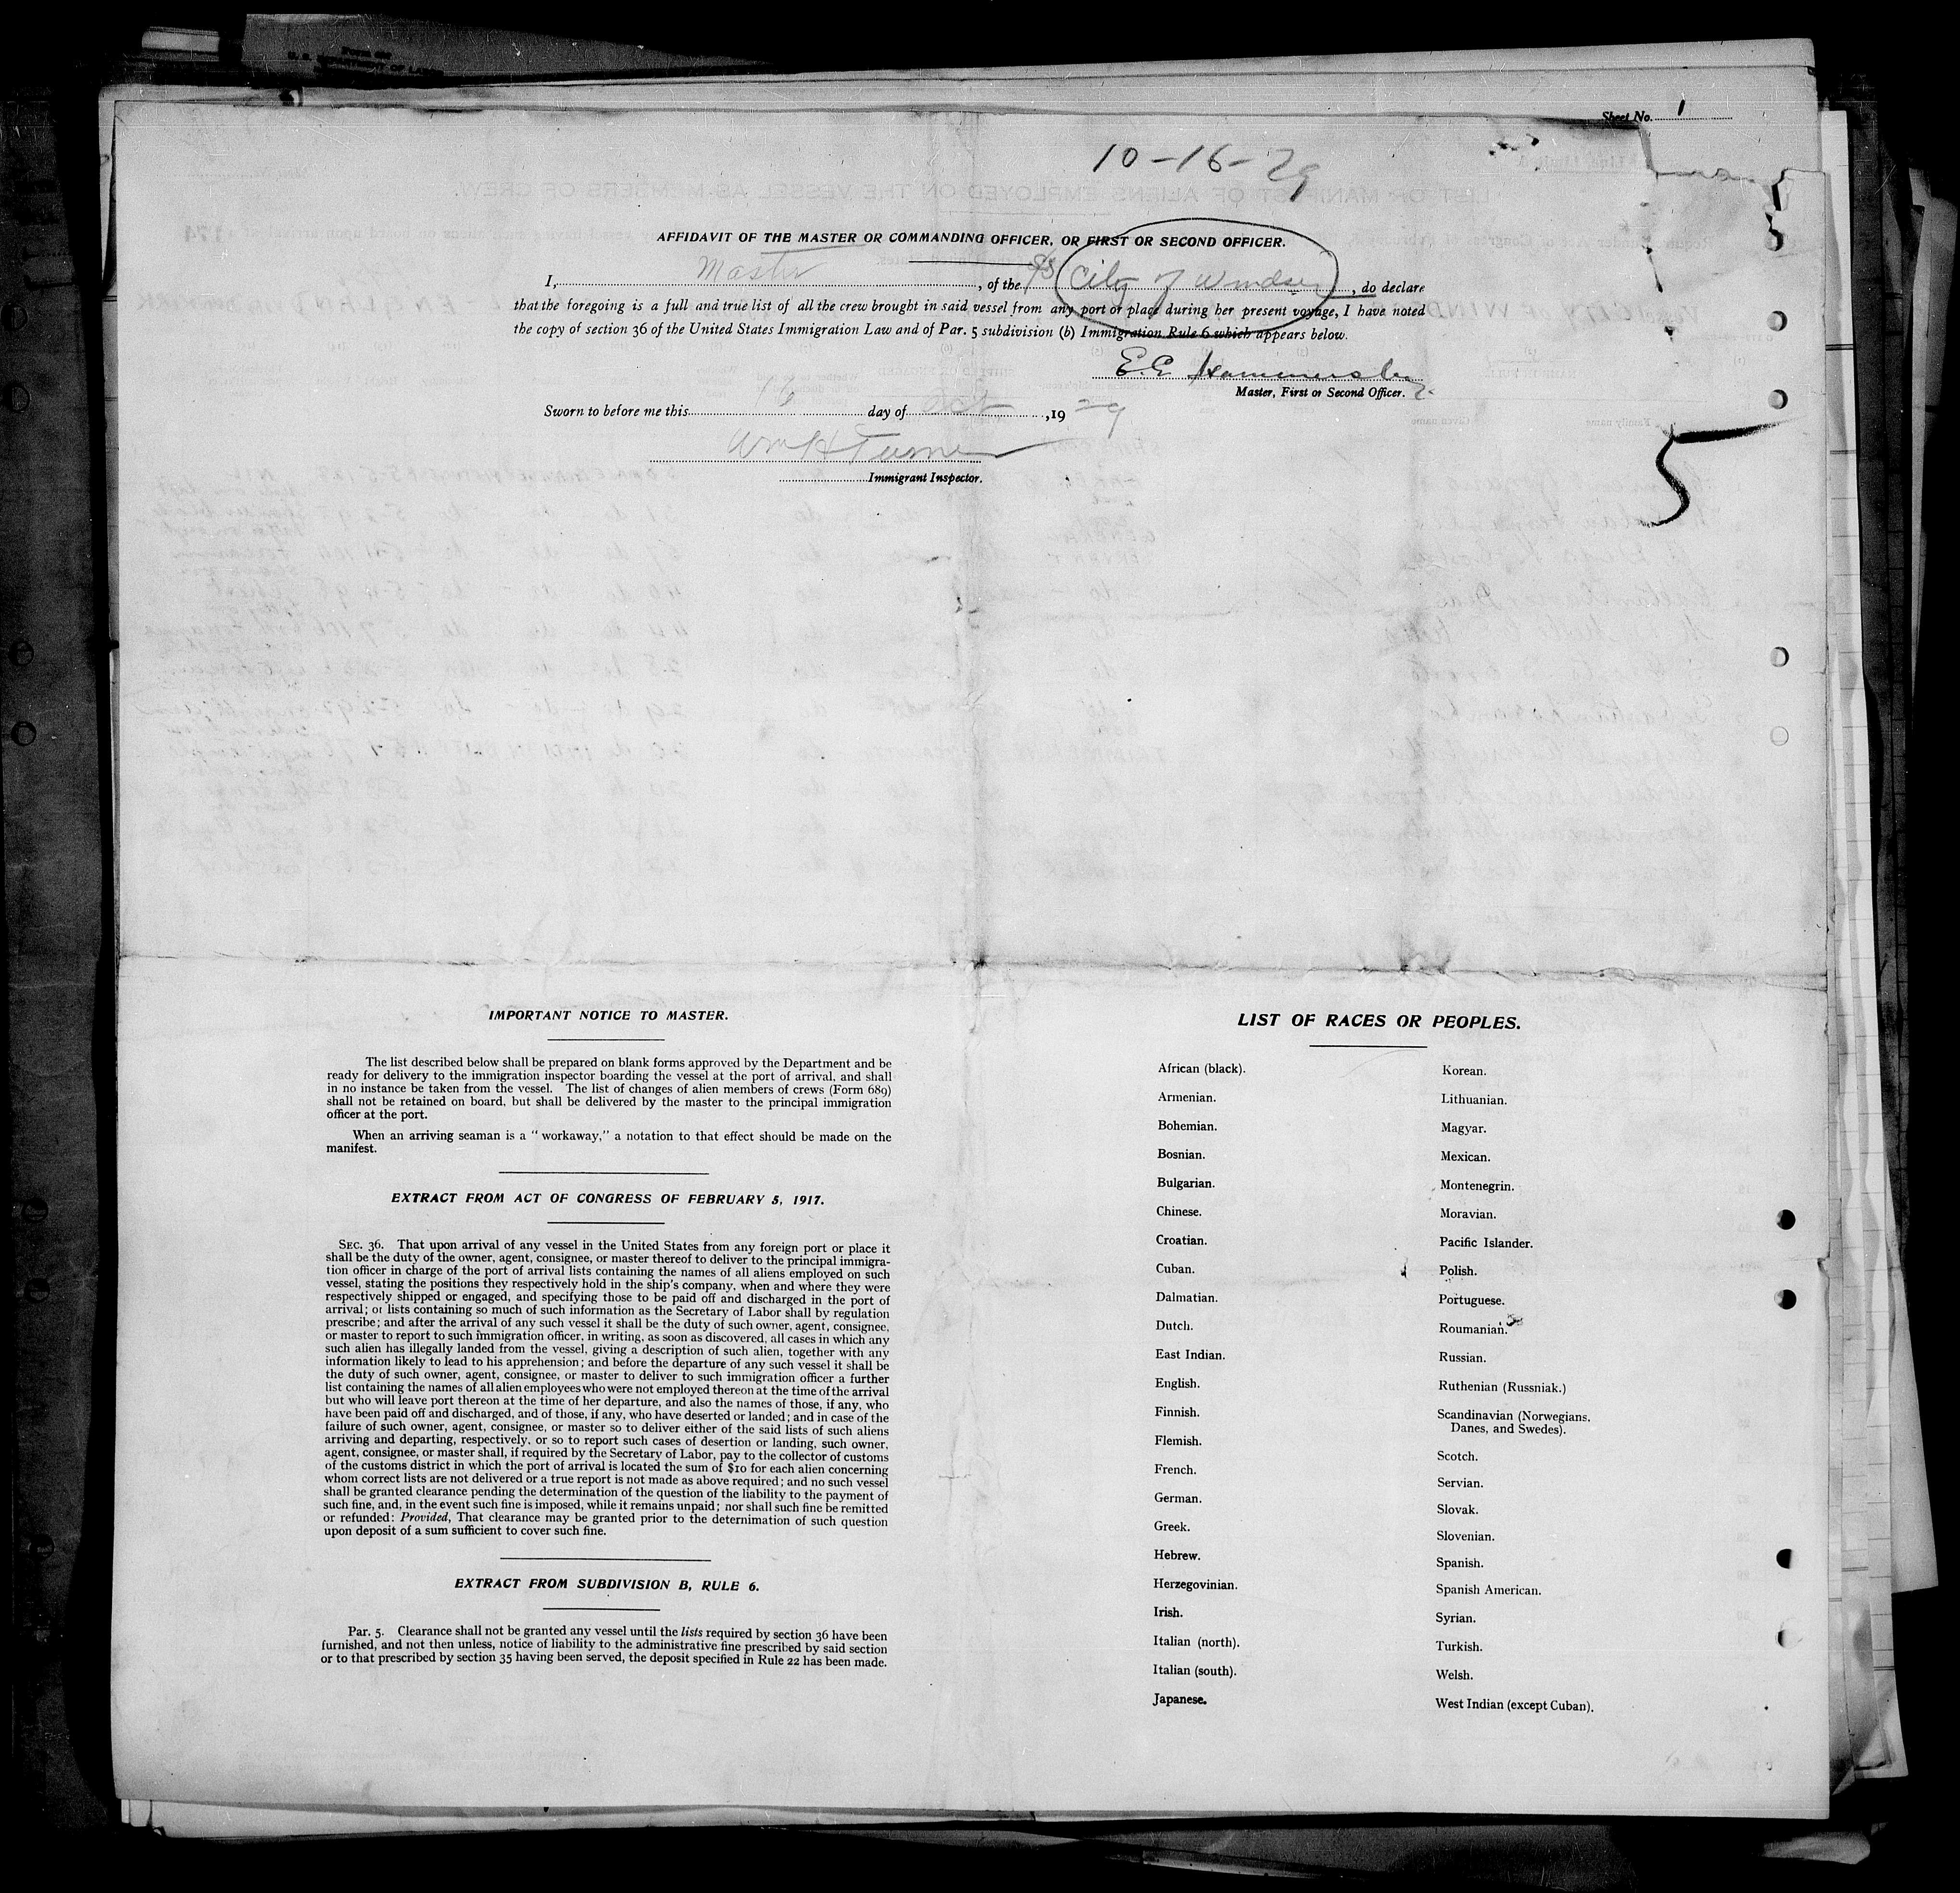 Sheet No. 1
10-16-29
AFFIDAVIT OF THE MASTER OR COMMANDING OFFICER, OR FIRST OR SECOND OFFICER.
I, Master, of the SS City of Windsor, do declare
that the foregoing is a full and true list of all the crew brought in said vessel from any port or place during her present voyage, I have noted
the copy of section 36 of the United States Immigration Law and of Par. 5 subdivision (b) Immigration Rule 6 which appears below.
E.E. Hammersley
Master, First or Second Officer.
Sworn to before me this 16 day of Oct, 19 29
Wm H Turner
Immigrant Inspector.
5
IMPORTANT NOTICE TO MASTER.
The list described below shall be prepared on blank forms approved by the Department and be
ready for delivery to the immigration inspector boarding the vessel at the port of arrival, and shall
in no instance be taken from the vessel. The list of changes of alien members of crews (Form 689)
shall not be retained on board, but shall be delivered by the master to the principal immigration
officer at the port.
When an arriving seaman is a "workaway," a notation to that effect should be made on the
manifest.
EXTRACT FROM ACT OF CONGRESS OF FEBRUARY 5, 1917.
SEC. 36. That upon arrival of any vessel in the United States from any foreign port or place it
shall be the duty of the owner, agent, consignee, or master thereof to deliver to the principal immigra-
tion officer in charge of the port of arrival lists containing the names of all aliens employed on such
vessel, stating the positions they respectively hold in the ship's company, when and where they were
respectively shipped or engaged, and specifying those to be paid off and discharged in the port of
arrival; or lists containing so much of such information as the Secretary of Labor shall by regulation
prescribe; and after the arrival of any such vessel it shall be the duty of such owner, agent, consignee,
or master to report to such immigration officer, in writing, as soon as discovered, all cases in which any
such alien has illegally landed from the vessel, giving a description of such alien, together with any
information likely to lead to his apprehension; and before the departure of any such vessel it shall be
the duty of such owner, agent, consignee, or master to deliver to such immigration officer a further
list containing the names of all alien employees who were not employed thereon at the time of the arrival
but who will leave port thereon at the time of her departure, and also the names of those, if any, who
have been paid off and discharged, and of those, if any, who have deserted or landed; and in case of the
failure of such owner, agent, consignee, or master so to deliver either of the said lists of such aliens
arriving and departing, respectively, or so to report such cases of desertion or landing, such owner,
agent, consignee, or master shall, if required by the Secretary of Labor, pay to the collector of customs
of the customs district in which the port of arrival is located the sum of $10 for each alien concerning
whom correct lists are not delivered or a true report is not made as above required; and no such vessel
shall be granted clearance pending the determination of the question of the liability to the payment of
such fine, and, in the event such fine is imposed, while it remains unpaid; nor shall such fine be remitted
or refunded: Provided, That clearance may be granted prior to the deternimation of such question
upon deposit of a sum sufficient to cover such fine.
EXTRACT FROM SUBDIVISION B, RULE 6.
Par. 5. Clearance shall not be granted any vessel until the lists required by section 36 have been
furnished, and not then unless, notice of liability to the administrative fine prescribed by said section
or to that prescribed by section 35 having been served, the deposit specified in Rule 22 has been made.
LIST OF RACES OR PEOPLES.
African (black).
Armenian.
Bohemian.
Bosnian.
Bulgarian.
Chinese.
Croatian.
Cuban.
Dalmatian.
Dutch.
East Indian.
English.
Finnish.
Flemish.
French.
German.
Greek.
Hebrew.
Herzegovinian.
Irish.
Italian (north).
Italian (south).
Japanese.
Korean.
Lithuanian.
Magyar.
Mexican.
Montenegrin.
Moravian.
Pacific Islander.
Polish.
Portuguese.
Roumanian.
Russian.
Ruthenian (Russniak.)
Scandinavian (Norwegians,
Danes, and Swedes).
Scotch.
Servian.
Slovak.
Slovenian.
Spanish.
Spanish American.
Syrian.
Turkish.
Welsh.
West Indian (except Cuban).